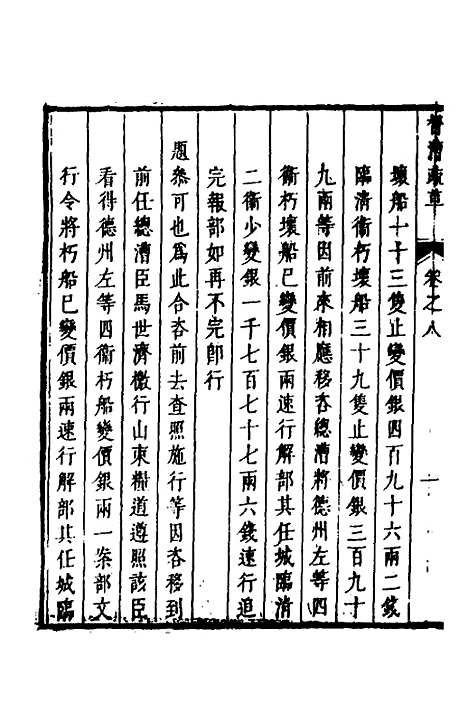 督漕疏草
卷之八
一
壞船十十三隻止變價銀四百九十六兩二錢
臨清衞朽壞船三十九隻止變價銀三百九十
九兩等因前來相應移咨總漕將德州左等四
衞朽壞船已變價銀兩速行解部其任城臨清
二衞少變銀一千七百七十七兩六錢速行追
完報部如再不完卽行
題叅可也爲此合咨前去查照施行等因咨移到
前任總漕臣馬世濟檄行山東糧道遵照該臣
看得德州左等四衞朽船變價銀兩一案部文
行令將朽船已變價銀兩速行解部其任城臨